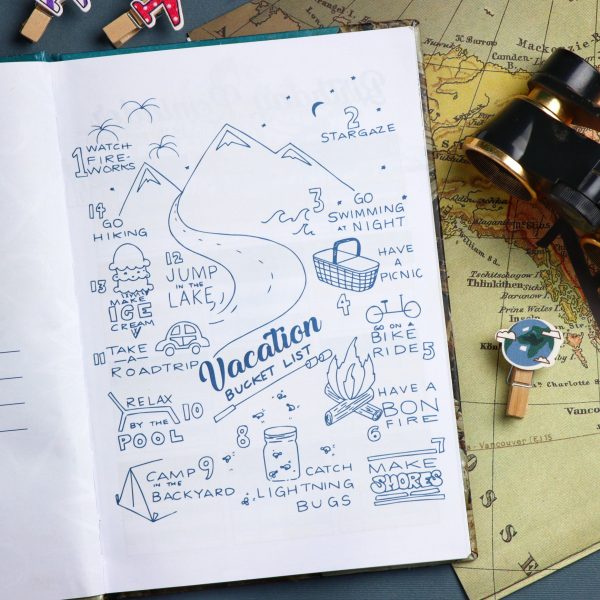 1 WATCH
FIRE-
WORKS
2
STARGAZE
3 GO
SWIMMING
AT NIGHT
HAVE
A
PICNIC
4
GO ON A
BIKE
RIDE 5
HAVE A
BON
FIRE
6
7
MAKE
SMORES
8
CATCH
LIGHTNING
BUGS
CAMP 9
IN THE
BACKYARD
RELAX
BY THE 10
POOL
11 TAKE
A
ROADTRIP
12
JUMP
IN THE
LAKE
13
MAKE
ICE
CREAM
14
GO
HIKING
Vacation
BUCKET LIST
K. Barrow
Mackenzie
Camden
Tschitschagow I.
Thlinkithen
Baranow I.
Prins Wales I.
Inseln
Charlotte
Vancouver
Vancouver (E.)
S
S